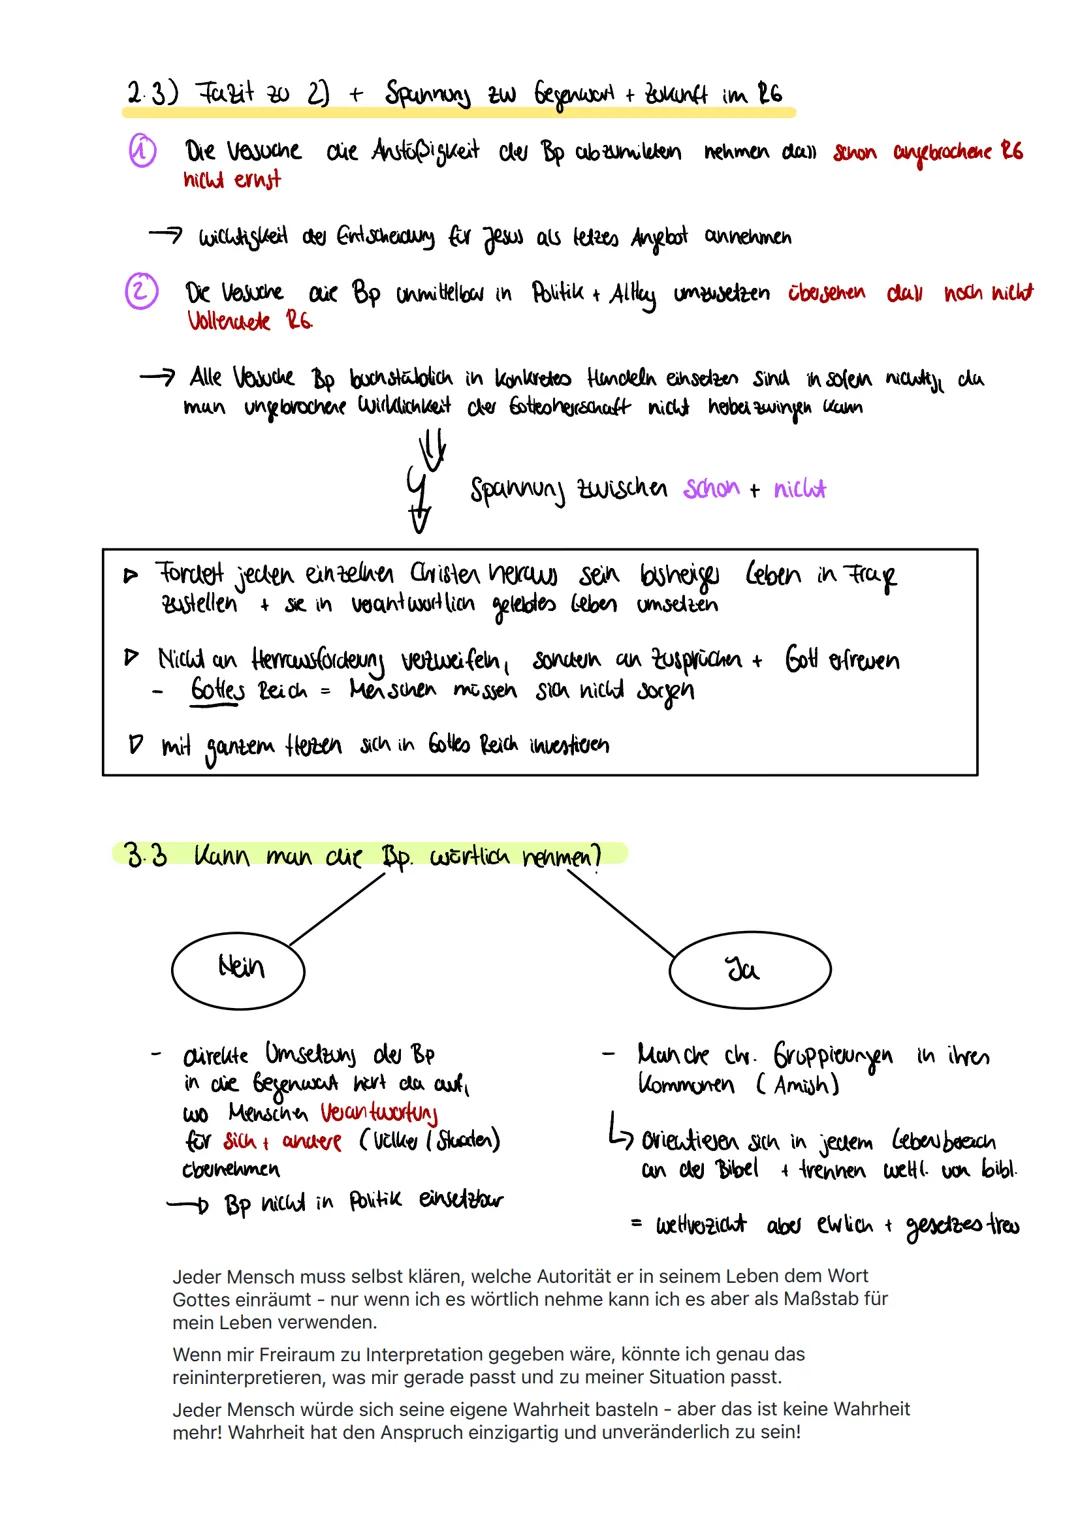 2.3) Fazit zu 2) + Spannung zw Gegenwart + Zukunft im RG
1 Die Versuche die Anstößigkeit der Bp abzumildern nehmen dass schon angebrochene RG
nicht ernst
→ Wichtigkeit der Entscheidung für Jesus als letzes Angebot annehmen
2 Die Versuche die Bp unmittelbar in Politik + Alltag umzusetzen übersehen dass noch nicht
Vollendete RG.
→ Alle Versuche Bp buchstäblich in konkretes Handeln einsetzen sind in sofern nichtig, da
man ungebrochene Wirklichkeit der Gottesherrschaft nicht herbei zwingen kann
Spannung zwischen schon + nicht
▷ Fordert jeden einzelnen Christen heraus sein bisheriges Leben in Frage
zustellen + sie in verantwortlich gelebtes Leben umsetzen
▷ Nicht an Herrausforderung verzweifeln, sondern an Zusprüchen + Gott erfreuen
- Gottes Reich = Menschen müssen sich nicht sorgen
▷ mit ganzem Herzen sich in Gottes Reich investieren
3.3 Kann man die Bp. wörtlich nehmen?
Nein
Ja
- direkte Umsetzung der Bp
in die Gegenwart hört da auf,
wo Menschen Verantwortung
für sich + andere (Völker / Staaten)
übernehmen
→ Bp nicht in Politik einsetzbar
- Manche chr. Gruppierungen in ihren
Kommunen (Amish)
↳ orientieren sich in jedem Lebensbereich
an der Bibel + trennen weltl. von bibl.
= weltverzicht aber ehrlich + gesetzestreu
Jeder Mensch muss selbst klären, welche Autorität er in seinem Leben dem Wort
Gottes einräumt - nur wenn ich es wörtlich nehme kann ich es aber als Maßstab für
mein Leben verwenden.
Wenn mir Freiraum zu Interpretation gegeben wäre, könnte ich genau das
reininterpretieren, was mir gerade passt und zu meiner Situation passt.
Jeder Mensch würde sich seine eigene Wahrheit basteln - aber das ist keine Wahrheit
mehr! Wahrheit hat den Anspruch einzigartig und unveränderlich zu sein!